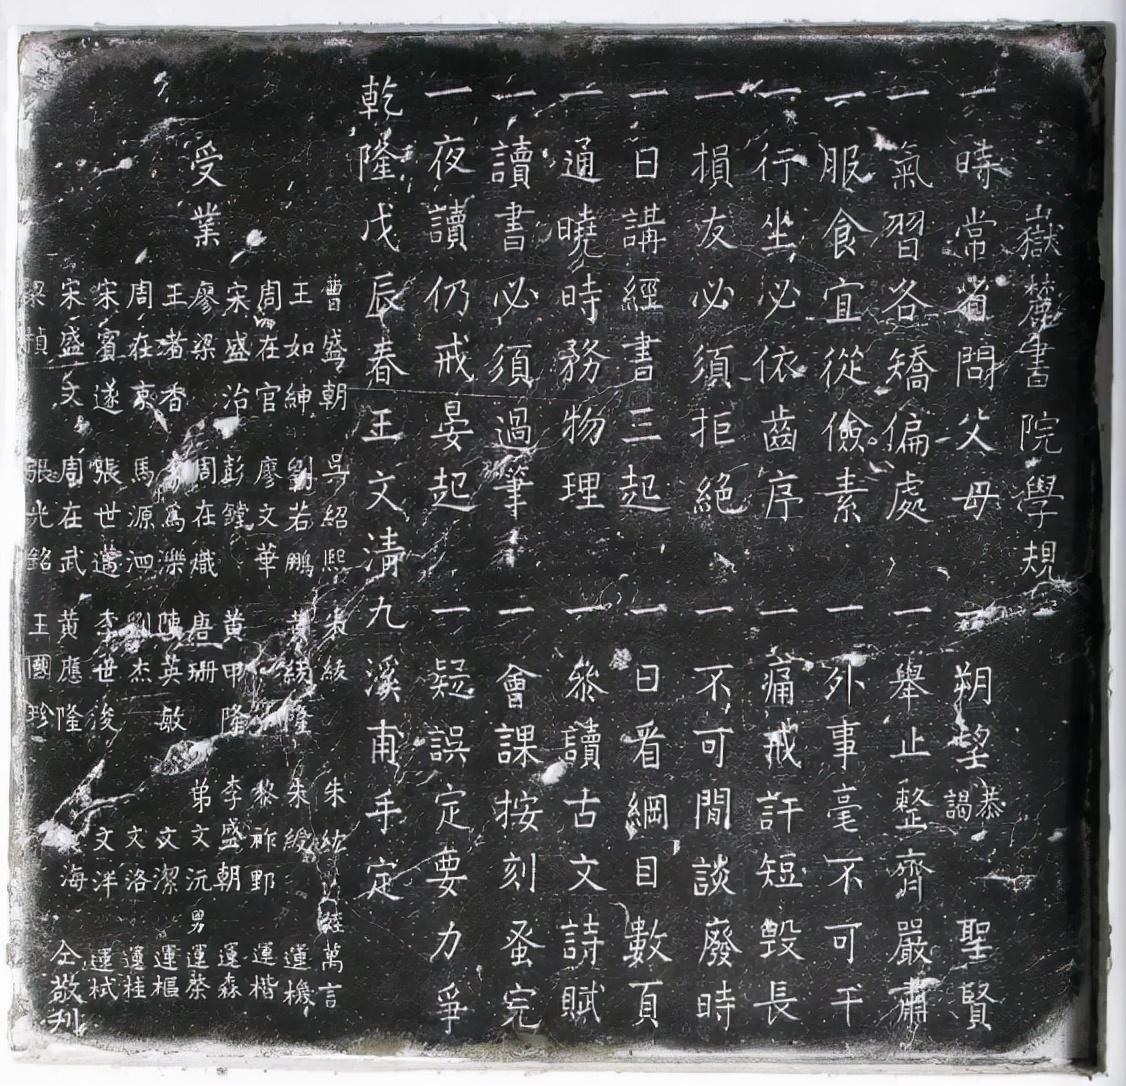 嶽麓書院學規
一時常省問父母 一朔望恭謁聖賢
一氣習各矯偏處 一舉止整齊嚴肅
一服食宜從儉素 一外事毫不可干
一行坐必依齒序 一痛戒訐短毀長
一損友必須拒絕 一不可閒談廢時
一日講經書三起 一日看綱目數頁
一通曉時務物理 一參讀古文詩賦
一讀書必須過筆 一會課按刻蚤完
一夜讀仍戒晏起 一疑誤定要力爭
乾隆戊辰春王文清九溪甫手定
受業
曹盛朝 吳紹熙 朱綾 朱 萬言
王如紳 劉若鵬 黃績隆 朱綬 運機
周在官 廖文華 黎祚野 運楷
宋盛治 彭鏜 黃甲隆 李盛朝 運森
廖梁 周在熾 唐珊 弟文沅 男運棨
王耇香 為濼 陳英敏 文潔 運樞
周在衷 馬源泗 劉杰 文洛 運桂
宋賓遂 張世邁 李世浚 文洋 運栻
宋盛文 周在武 黃應隆 海 仝敬刊
梁楨 張光銘 王國珍